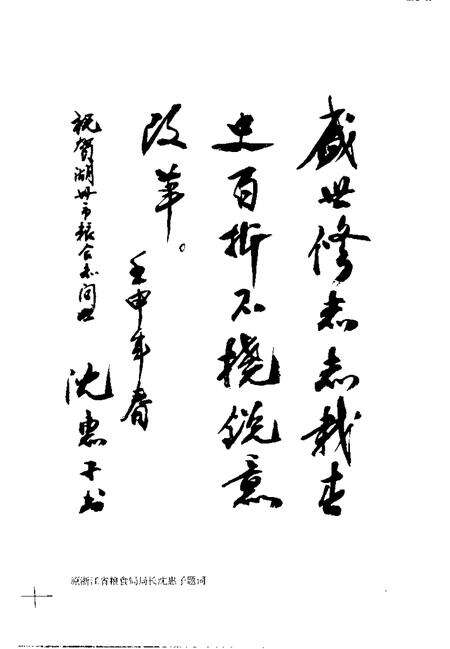 盛世修志志载青
史百折不挠锐意
改革。
壬申年春
祝贺湖州市粮食志问世
沈惠子书
原浙江省粮食局局长沈惠子题词